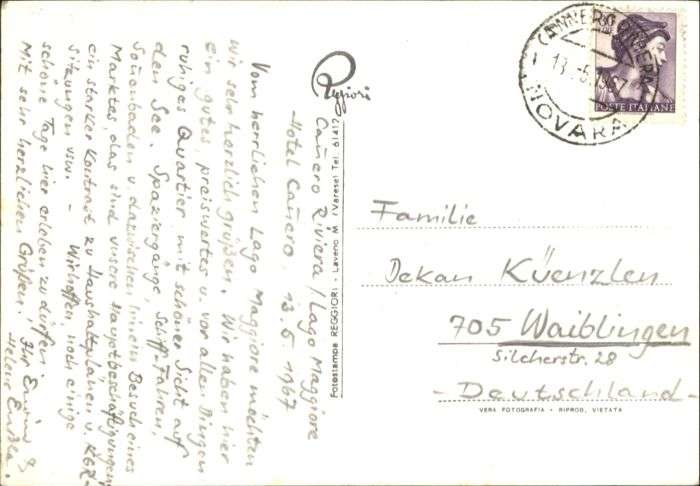 Cañero Riviera / Lago Maggiore
Hotel Cañero. 13. 5. 1967
Vom herrlichen Lago Maggiore möchten
wir sehr herzlich grüßen. Wir haben hier
ein gutes, preiswertes u. vor allen Dingen
ruhiges Quartier mit schöner Sicht auf
den See. Spaziergänge, Schiff-Fahren,
Sonnenbaden u. dazwischen hinein Besuch eines
Marktes, das sind unsere Hauptbeschäftigungen
ein starker Kontrast zu Haushaltplänen u. KGR-
sitzungen usw. - Wir hoffen, noch einige
schöne Tage hier erleben zu dürfen.
Mit sehr herzlichen Grüßen! Ihr Erwin &
Helene
Reggiori
Fotostampa REGGIORI - Laveno M. (Varese) Tel. 61472
CANNERO RIVIERA
13.-5.1967
NOVARA
POSTE ITALIANE
Familie
Dekan Küenzlen
705 Waiblingen
Silcherstr. 28
- Deutschland -
VERA FOTOGRAFIA - RIPROD. VIETATA